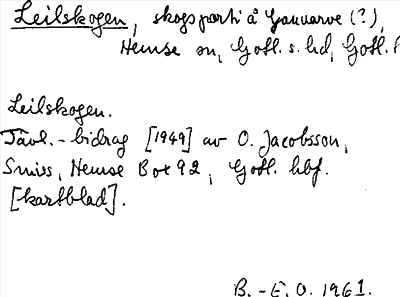 Leilskogen, skogsparti å Gannarve (?),
Hemse sn, Gotl. s. hd, Gotl. l
Leilskogen.
Tävl.-bidrag [1949] av O. Jacobsson,
Smiss, Hemse Box 92, Gotl. hbf.
[kartblad].
B.-E. O. 1961.